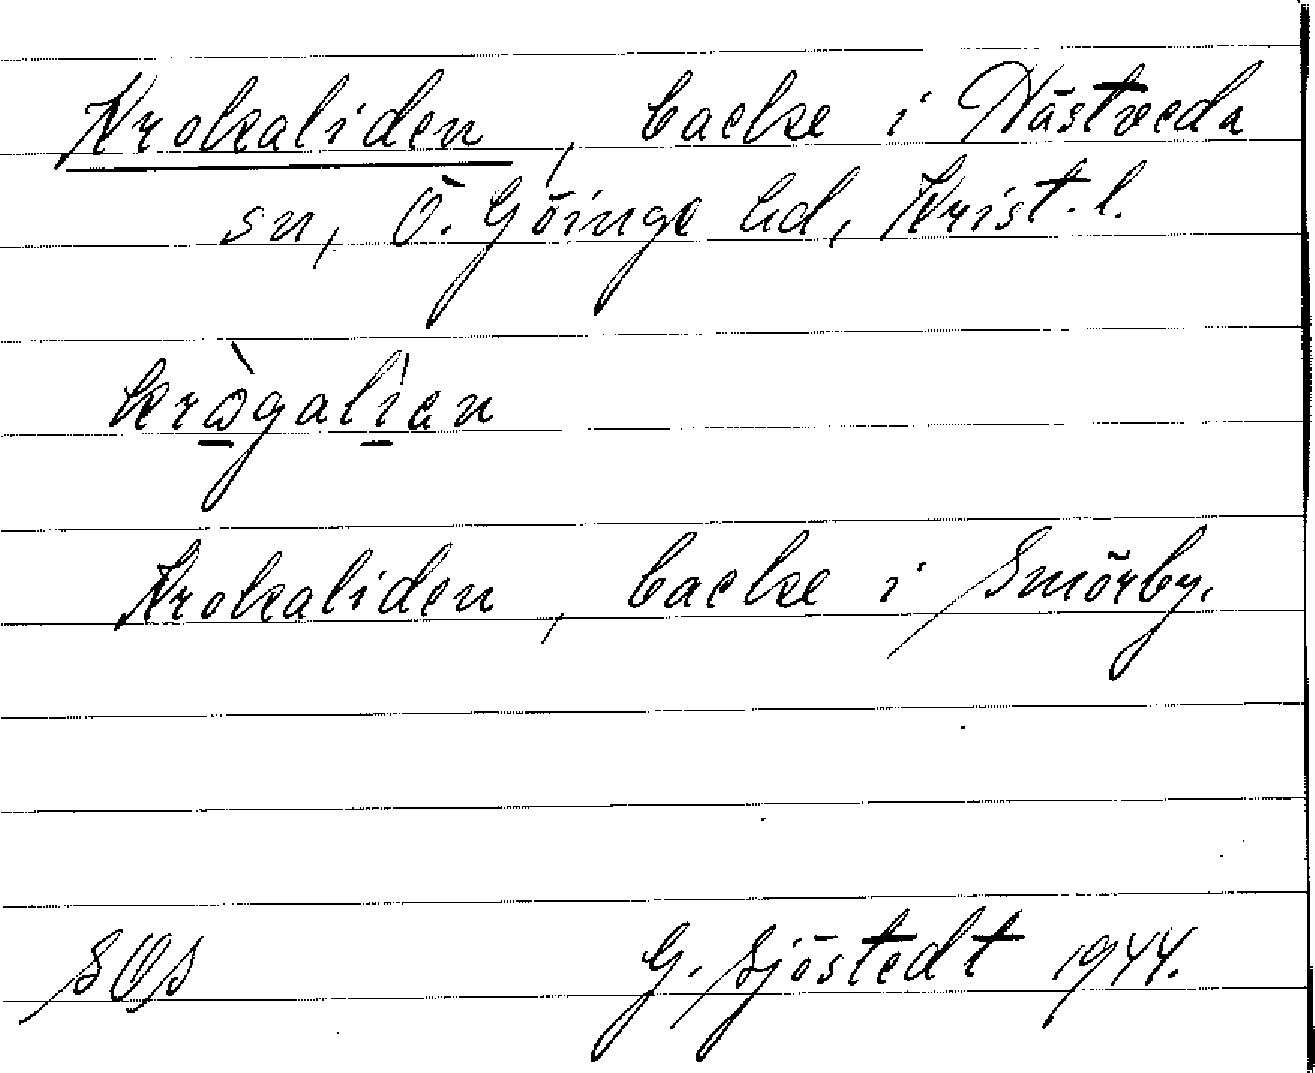 Krokaliden, backe i Hästveda
sn, Ö. Göinge hd, Krist. l.
krògalìen
Krokaliden, backe i Smörby.
SOS G. Sjöstedt 1944.